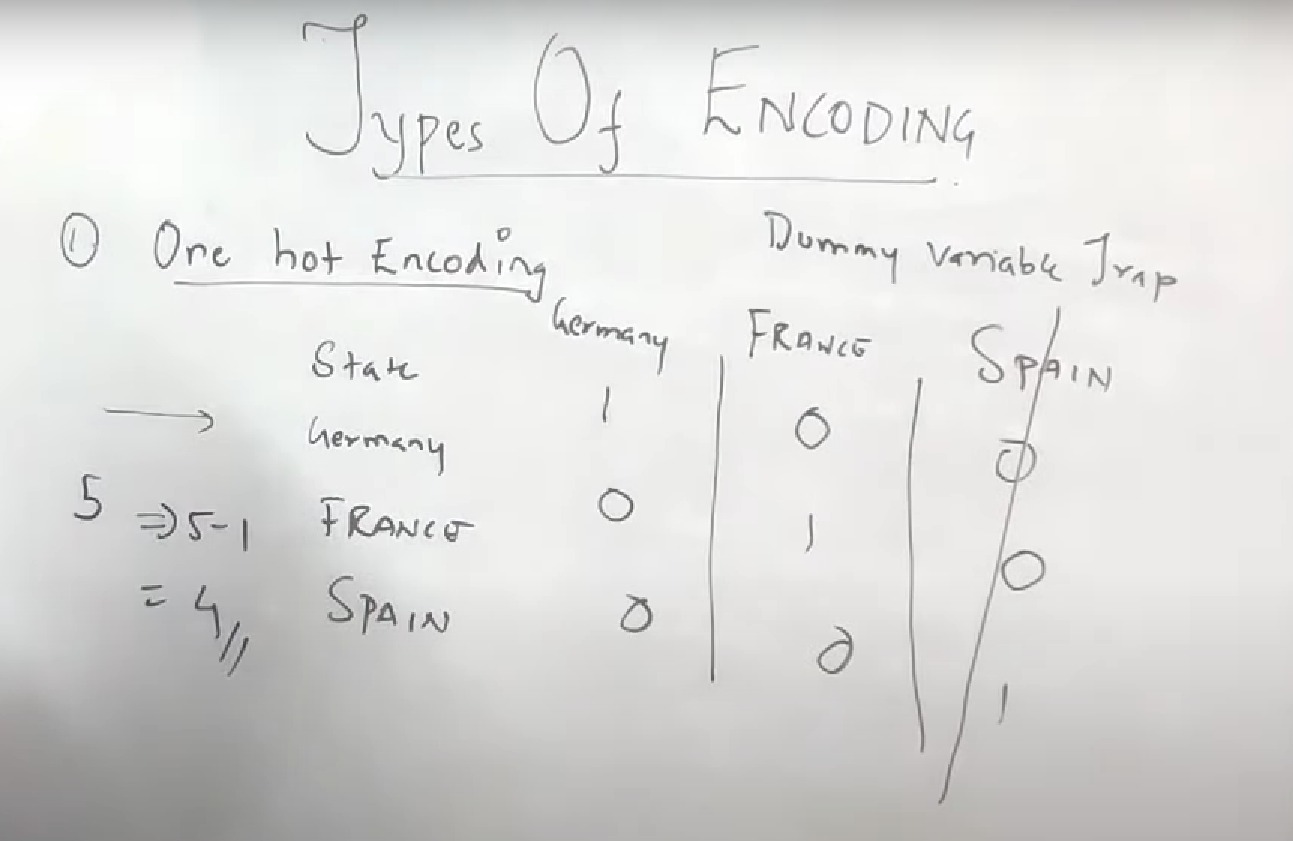 Types Of ENCODING
① One hot Encoding
Dummy variable Trap
State Germany FRANCE SPAIN
→ Germany 1 0 0
5 ⇒ 5-1 FRANCE 0 1 0
= 4 SPAIN 0 0 1